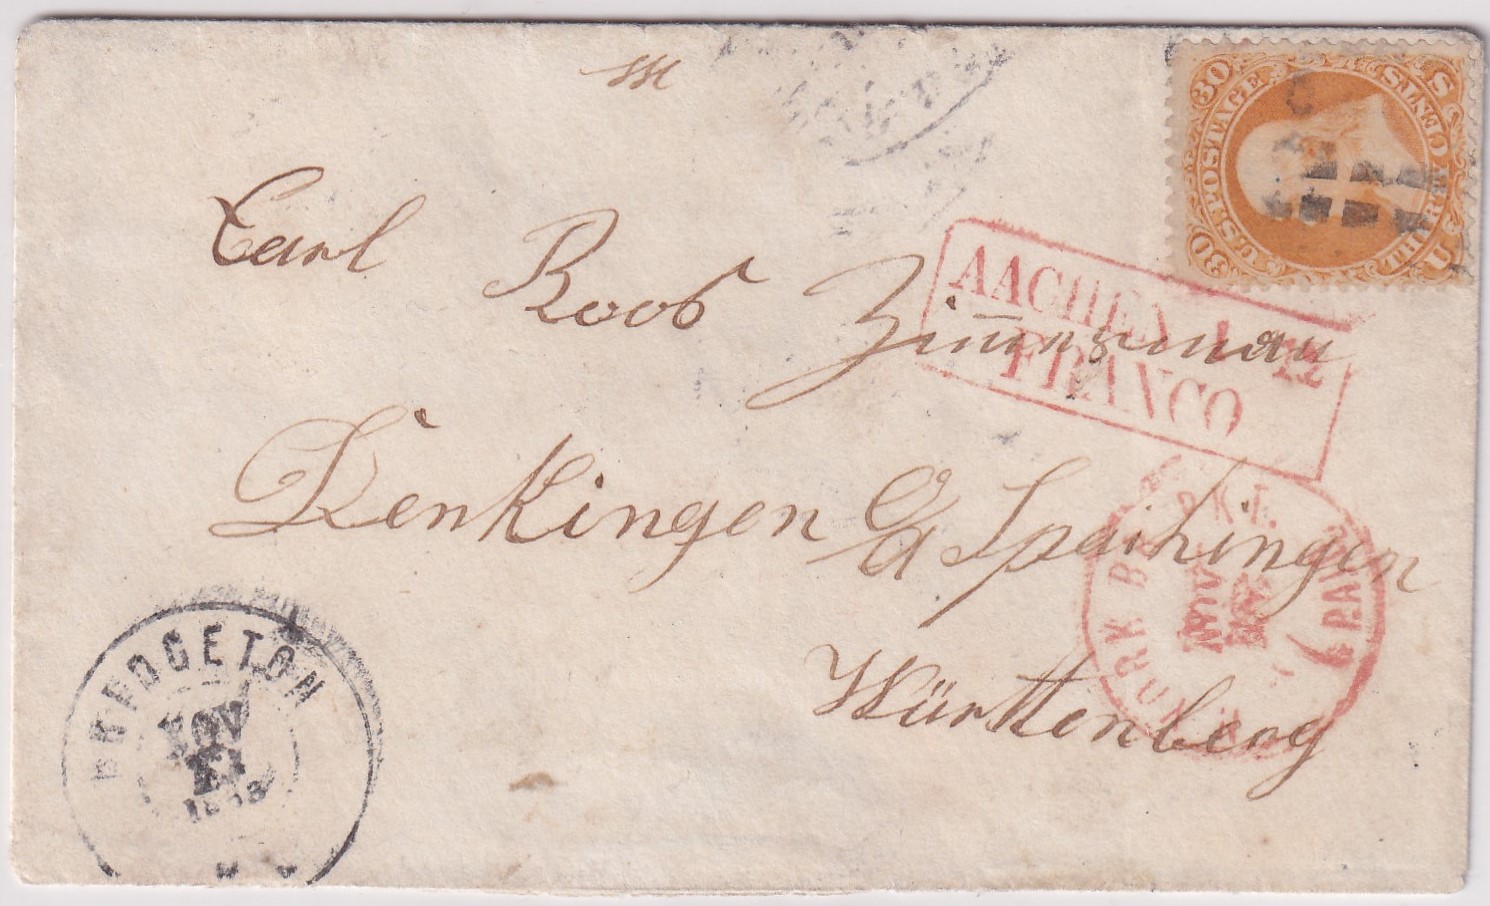 Carl Roos Zimmerman
Denkingen O/A Spaichingen
Württenberg
30 U.S. POSTAGE 30
THIRTY CENTS
U S
AACHEN
FRANCO
YORK PKT.
NOV
PAID
BRIDGETON
NOV